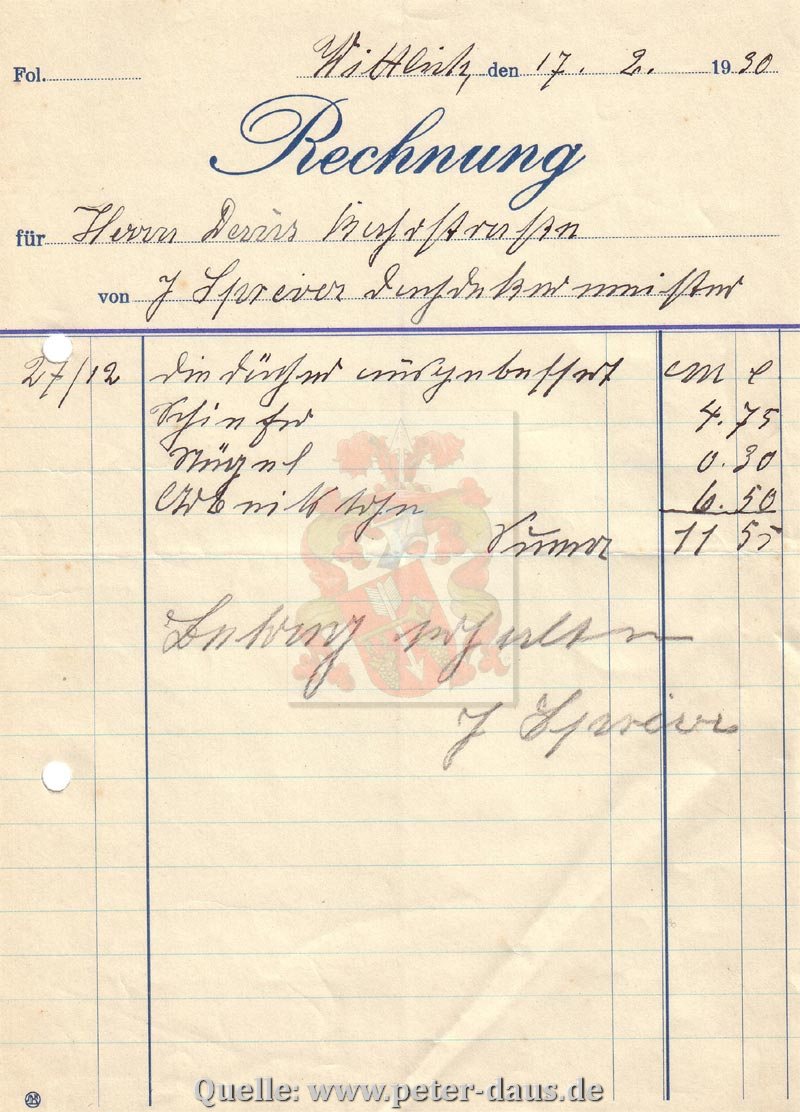 Fol. Wittlich, den 17. 2. 1930
Rechnung
für Herrn Daus Kurfstraße
von J Spreier Dachdekermeister
27/12 die Dächer ausgebessert M
Schiefer 4.75
Nägel 0.30
Arbeitslohn 6.50
Suma 11 55
Betrag erhalten
J Spreier
Quelle: www.peter-daus.de